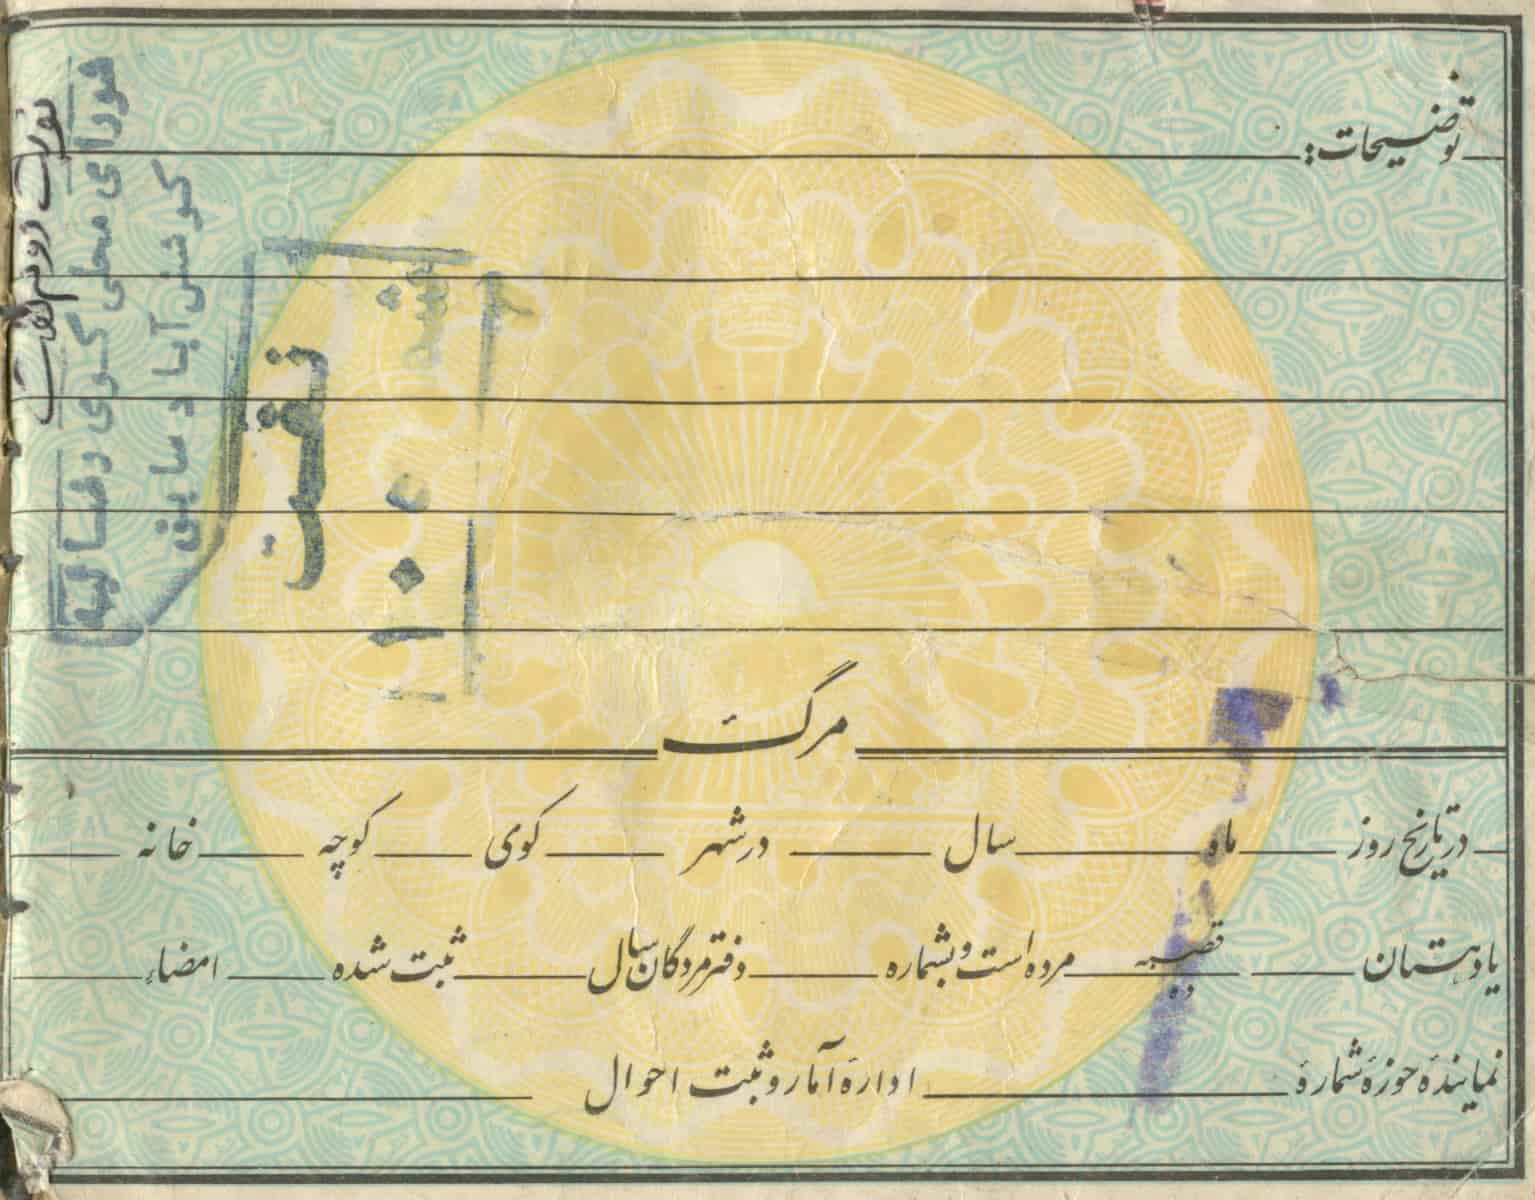 توضیحات:
مرگ
در تاریخ روز ماه سال در شهر کوی کوچه خانه
یا دهستان قصبه ده مرده است و بشماره دفتر مردگان سال ثبت شده امضاء
نمایندهٔ حوزهٔ شمارهٔ ادارهٔ آمار و ثبت احوال
نوبت دوم نفت
شورای محلی کوی رفسا
کوشش آباد سابق
نفت
شد